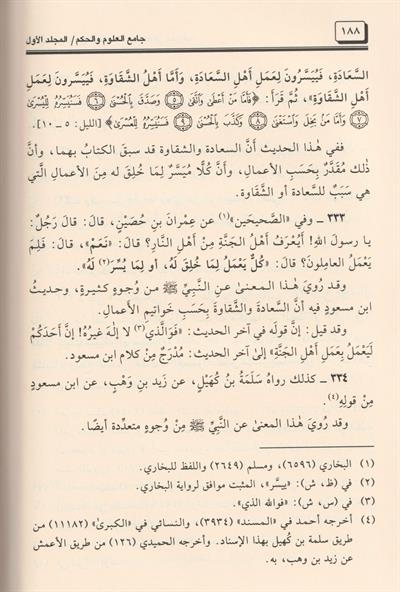 ١٨٨
جامع العلوم والحكم/ المجلد الأول
السَّعادَةِ، فَيُيَسَّرُونَ لِعَمَلِ أهْلِ السَّعادَةِ، وَأمَّا أهْلُ الشَّقاوَةِ، فَيُيَسَّرُونَ لِعَمَلِ
أهْلِ الشَّقاوَةِ»، ثُمَّ قَرَأ: ﴿فَأَمَّا مَنْ أَعْطَى وَاتَّقَى ۝٥ وَصَدَّقَ بِالْحُسْنَى ۝٦ فَسَنُيَسِّرُهُ لِلْيُسْرَى
۝٧ وَأَمَّا مَنْ بَخِلَ وَاسْتَغْنَى ۝٨ وَكَذَّبَ بِالْحُسْنَى ۝٩ فَسَنُيَسِّرُهُ لِلْعُسْرَى﴾ [الليل: ٥ ـ ١٠].
ففي هذا الحديث أنَّ السعادة والشقاوة قد سبقَ الكتابُ بهما، وأنَّ
ذٰلك مُقدَّرٌ بحَسَبِ الأعمال، وأنَّ كُلًّا مُيَسَّرٌ لِما خُلِقَ له مِنَ الأعمالِ الَّتي
هي سَبَبٌ للسَّعادة أو الشَّقاوة.
٣٣٣ ـ وفي «الصَّحيحين»(١) عن عِمرانَ بنِ حُصَيْنٍ، قالَ: قالَ رَجُلٌ:
يا رسولَ اللهِ! أيُعْرَفُ أهْلُ الجَنَّةِ مِنْ أهْلِ النَّارِ؟ قالَ: «نَعَمْ»، قالَ: فَلِمَ
يَعْمَلُ العامِلونَ؟ قالَ: «كُلٌّ يَعْمَلُ لِما خُلِقَ لَهُ، أو لِما يُسِّرَ(٢) لَهُ».
وقد رُوِيَ هٰذا المعنىٰ عن النَّبيِّ ﷺ من وُجوهٍ كثيرةٍ، وحديثُ
ابن مسعودٍ فيه أنَّ السَّعادةَ والشَّقاوةَ بِحَسَبِ خَواتِيمِ الأعمالِ.
وقد قيل: إنَّ قولَه في آخرِ الحديث: «فَوَالَّذي(٣) لا إلٰهَ غَيرُهُ! إنَّ أحَدَكُمْ
لَيَعْمَلُ بِعَمَلِ أهْلِ الجَنَّةِ» إلىٰ آخرِ الحديث: مُدْرَجٌ مِنْ كلام ابن مسعود.
٣٣٤ ـ كذلك رواه سَلَمَةُ بنُ كُهَيْلٍ، عن زَيد بنِ وَهْبٍ، عن ابن مسعودٍ
مِنْ قولِهِ(٤).
وقد رُوِيَ هٰذا المعنىٰ عن النَّبيِّ ﷺ مِنْ وُجوهٍ متعدِّدة أيضًا.
(١) البخاري (٦٥٩٦)، ومسلم (٢٦٤٩) واللفظ للبخاري.
(٢) في (ظ، ش): «ييسر»، المثبت موافق لرواية البخاري.
(٣) في (س، ش): «فوالله الذي».
(٤) أخرجه أحمد في «المسند» (٣٩٣٤)، والنسائي في «الكبرىٰ» (١١١٨٢) من
طريق سلمة بن كُهيل بهذا الإسناد. وأخرجه الحميدي (١٢٦) من طريق الأعمش
عن زيد بن وهب، به.